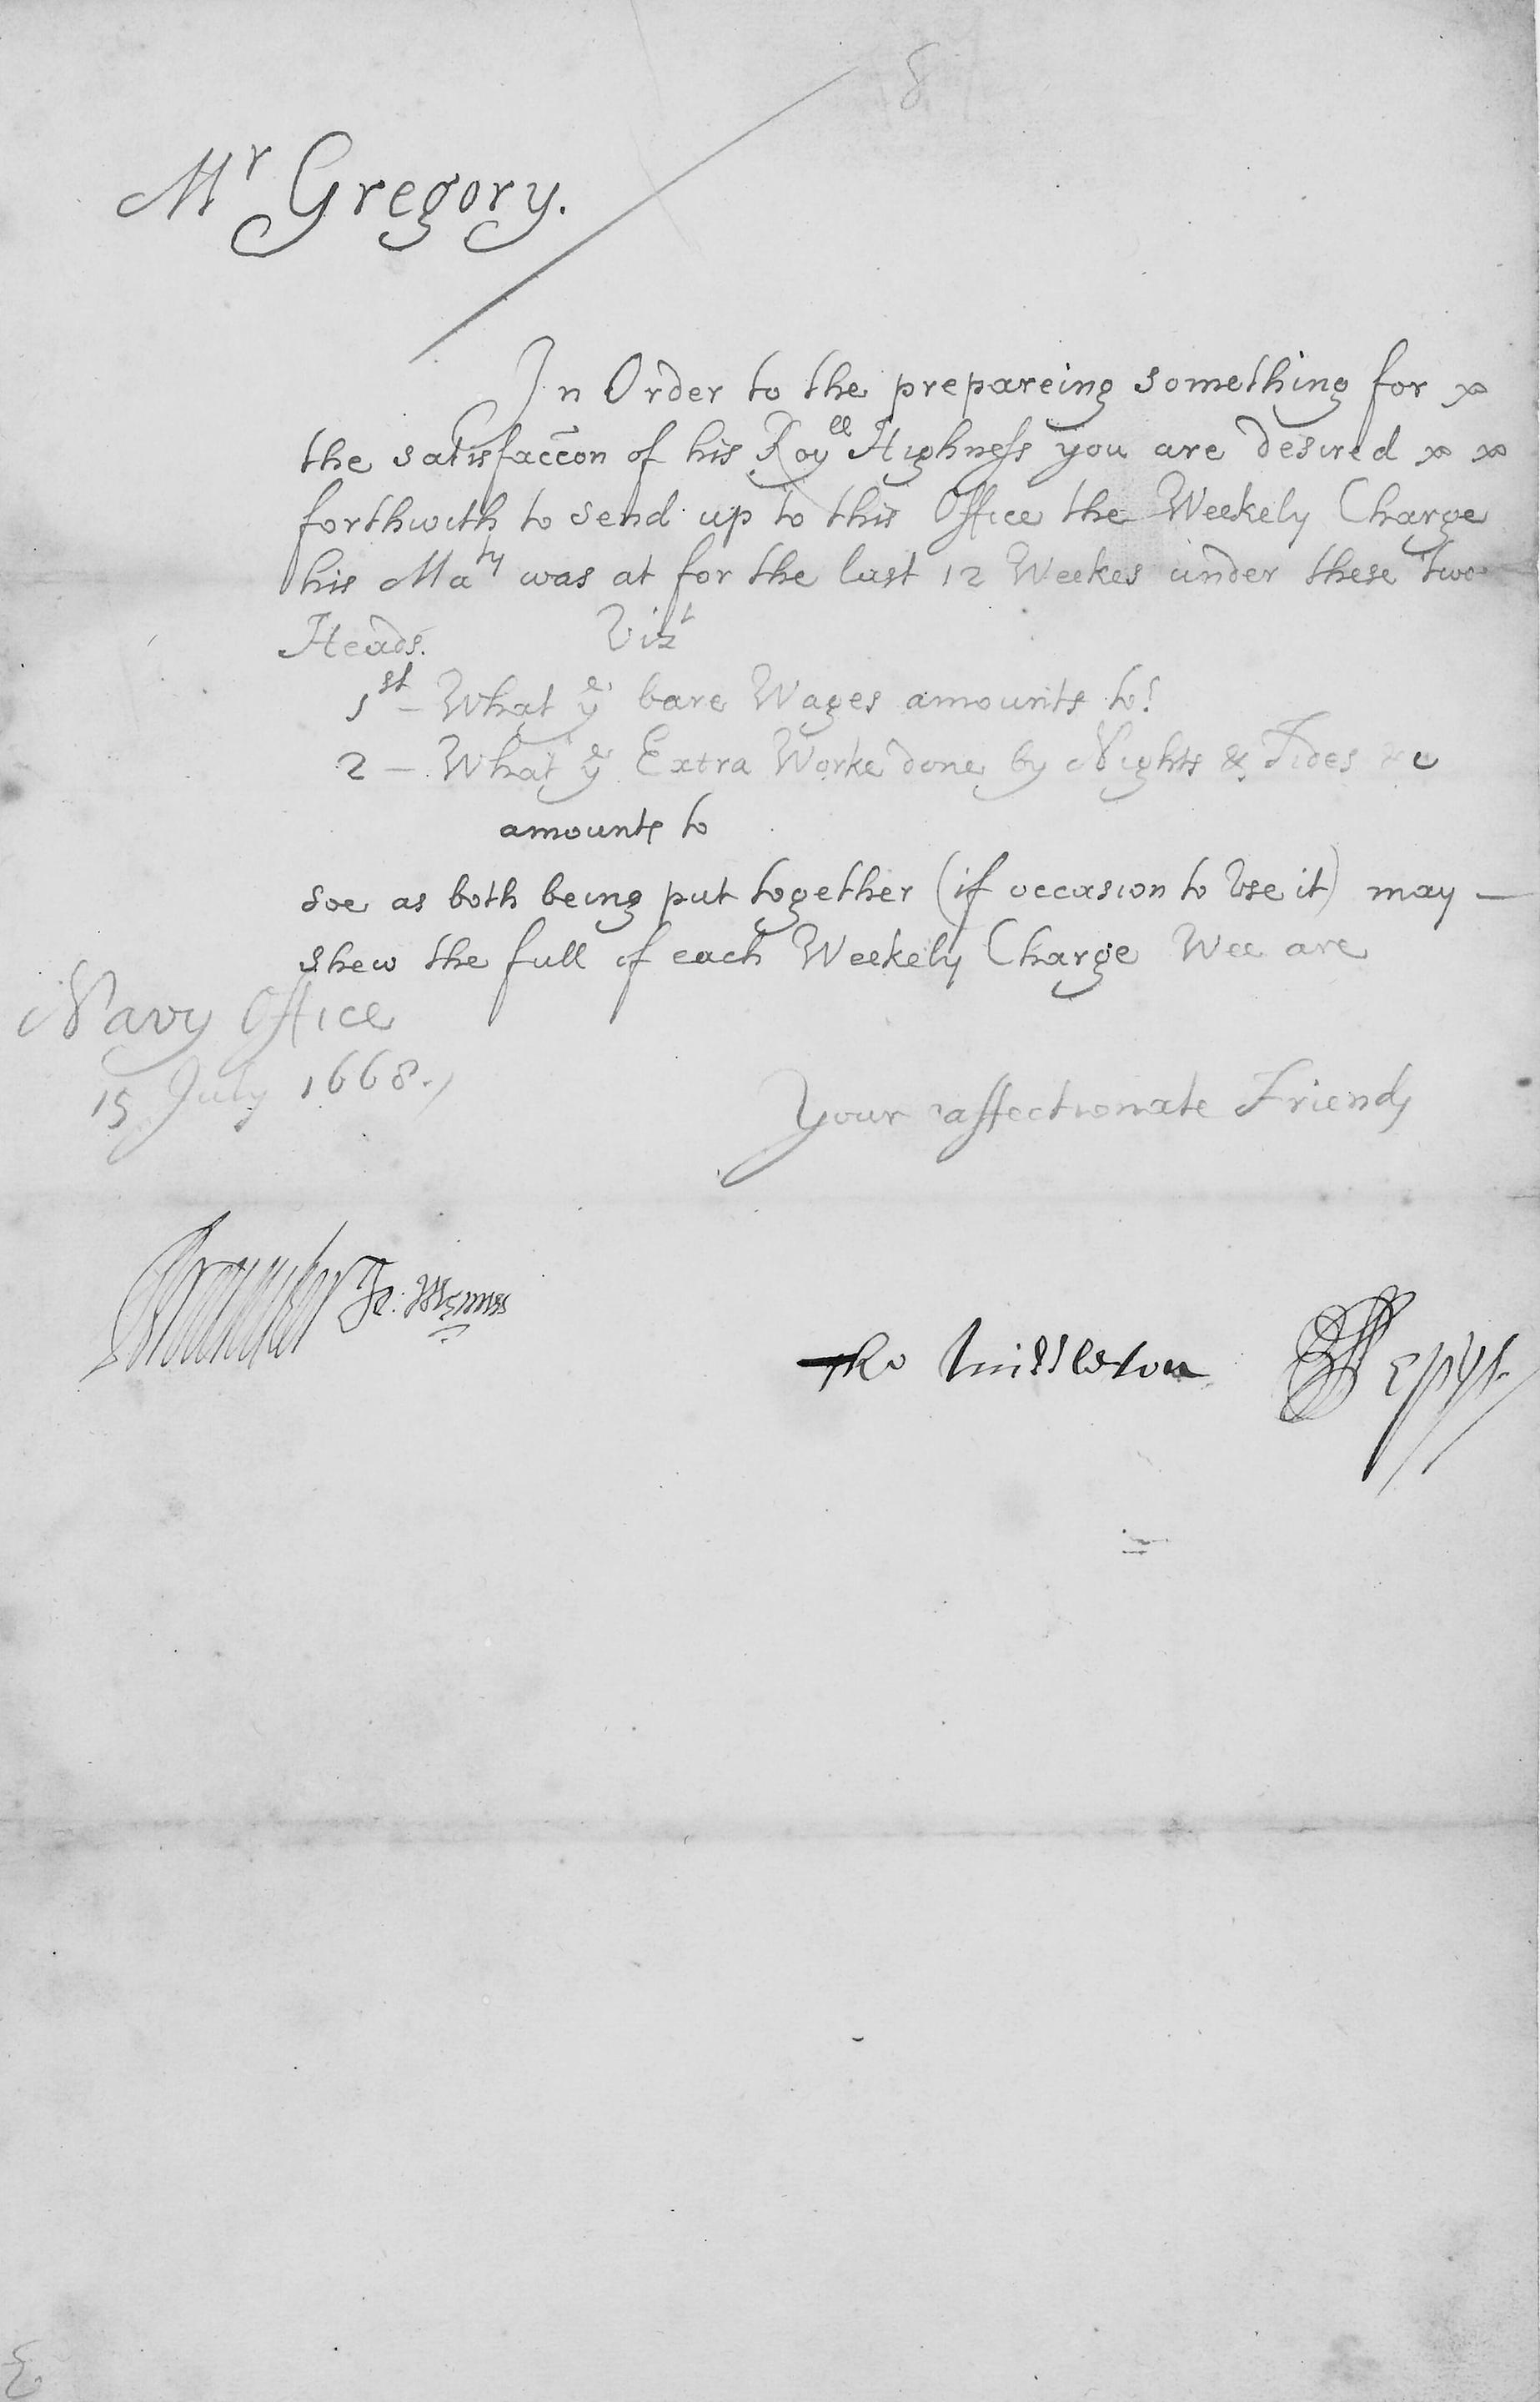 8
Mr Gregory.
In Order to the prepareing something for
the satisfaccon of his Royll Highness you are desired
forthwith to send up to this Office the Weekely Charge
his Maty was at for the last 12 Weekes under these two
Heads. Vizt
1st - What ye bare Wages amounts to?
2 - What ye Extra Worke done by Nights & Tides &c
amounts to
soe as both being put together (if occasion to Use it) may -
shew the full of each Weekely Charge Wee are
Navy Office
15 July 1668.
Your affectionate Friends
Brouncker J: Mennes
Tho Middleton SPepys.